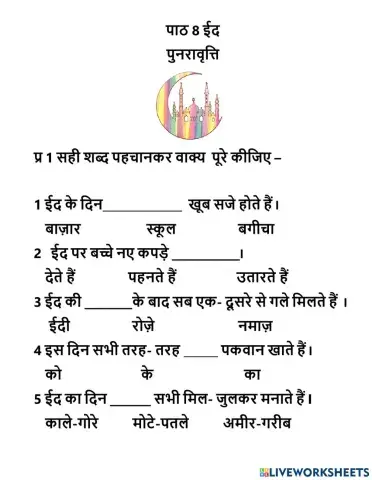 पाठ 8 ईद
पुनरावृत्ति
प्र 1 सही शब्द पहचानकर वाक्य पूरे कीजिए –
1 ईद के दिन______________ खूब सजे होते हैं।
बाज़ार स्कूल बगीचा
2 ईद पर बच्चे नए कपड़े ____________।
देते हैं पहनते हैं उतारते हैं
3 ईद की ________के बाद सब एक- दूसरे से गले मिलते हैं ।
ईदी रोज़े नमाज़
4 इस दिन सभी तरह- तरह ______ पकवान खाते हैं।
को के का
5 ईद का दिन _______ सभी मिल- जुलकर मनाते हैं।
काले-गोरे मोटे-पतले अमीर-गरीब
LIVEWORKSHEETS